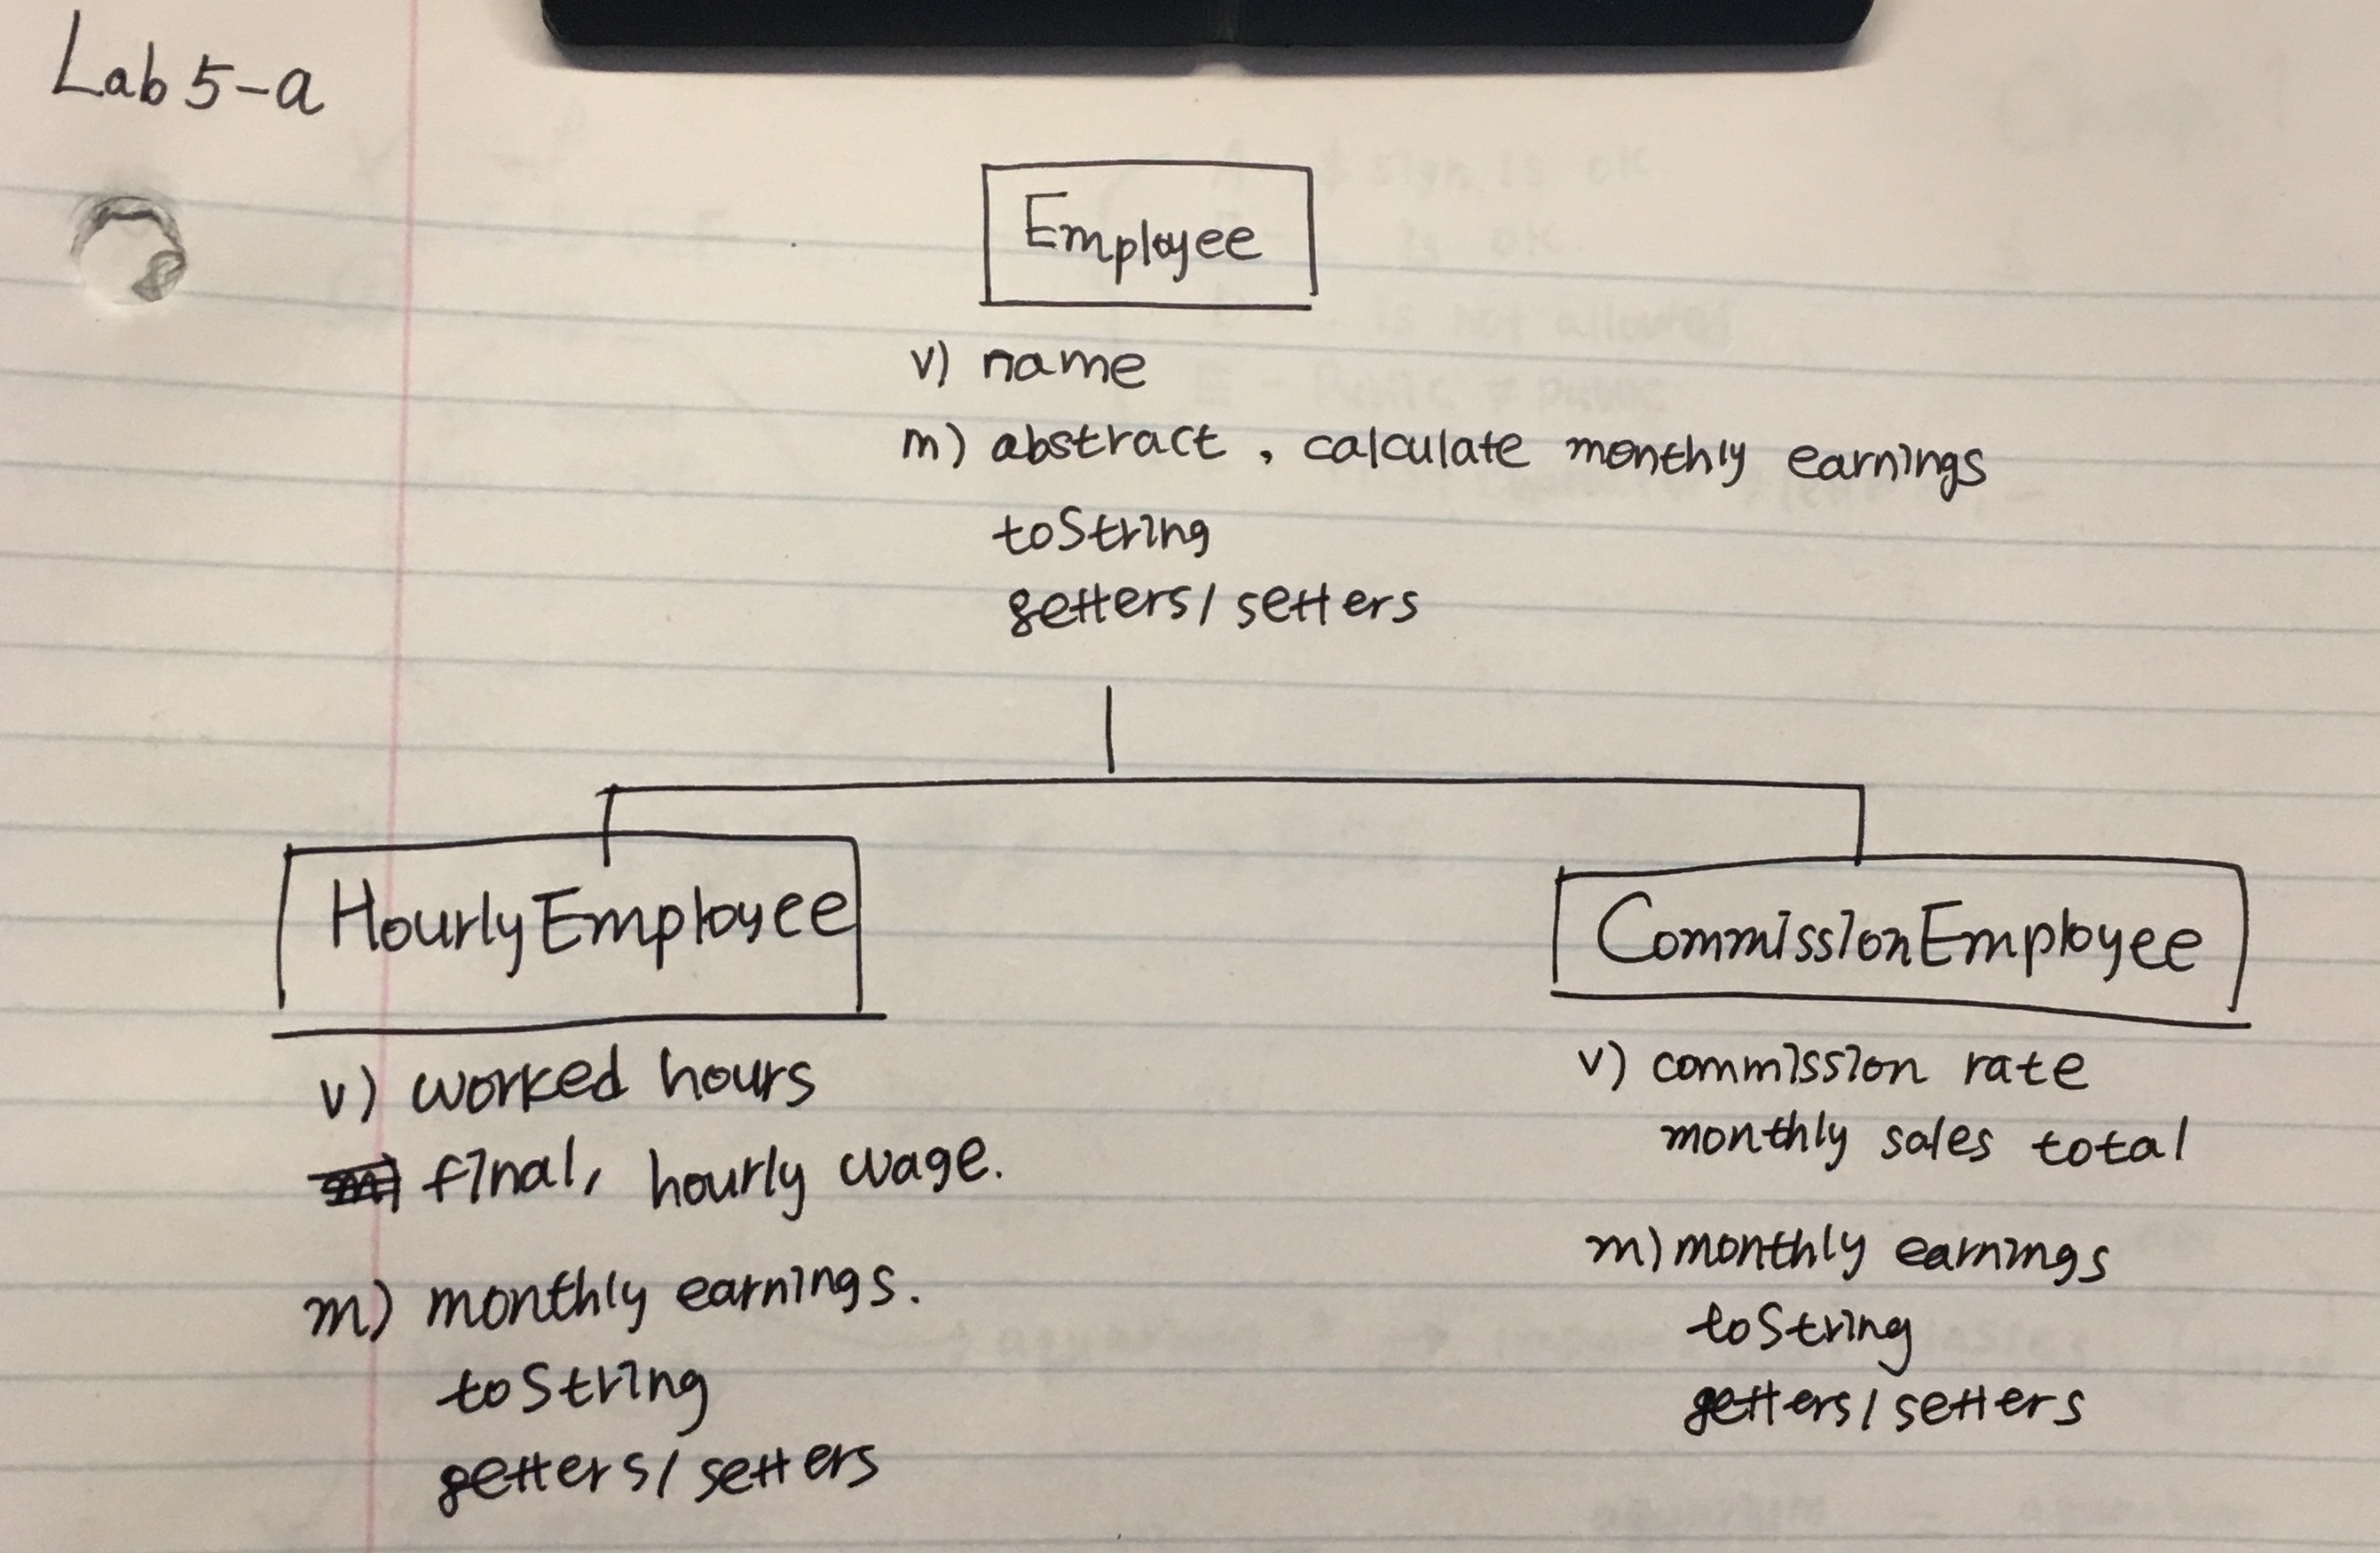 Lab 5-a
Employee
v) name
m) abstract, calculate monthly earnings
toString
getters/setters
HourlyEmployee
v) worked hours
final, hourly wage.
m) monthly earnings.
toString
getters/setters
CommissionEmployee
v) commission rate
monthly sales total
m) monthly earnings
toString
getters/setters